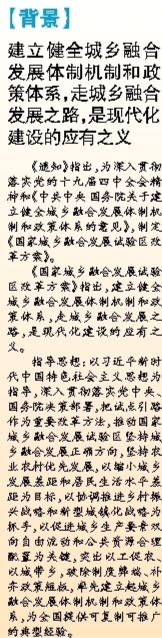 【背景】
建立健全城乡融合
发展体制机制和政
策体系,走城乡融合
发展之路,是现代化
建设的应有之义
《通知》指出,为深入贯彻
落实党的十九届四中全会精
神和《中共中央 国务院关于建
立健全城乡融合发展体制机
制和政策体系的意见》,制定
《国家城乡融合发展试验区改
革方案》。
《国家城乡融合发展试验
区改革方案》指出,建立健全城
乡融合发展体制机制和政
策体系,走城乡融合发展之
路,是现代化建设的应有之
义。
指导思想:以习近平新时
代中国特色社会主义思想为
指导,深入贯彻落实党中央、
国务院决策部署,把试点引路
作为重要改革方法,推动国家
城乡融合发展试验区坚持城
乡融合发展正确方向,坚持农
业农村优先发展,以缩小城乡
发展差距和居民生活水平差
距为目标,以协调推进乡村振
兴战略和新型城镇化战略为
抓手,以促进城乡生产要素双
向自由流动和公共资源合理
配置为关键,突出以工促农、
以城带乡,破除制度弊端、补
齐政策短板,率先建立起城乡
融合发展体制机制和政策体
系,为全国提供可复制可推广
的典型经验。